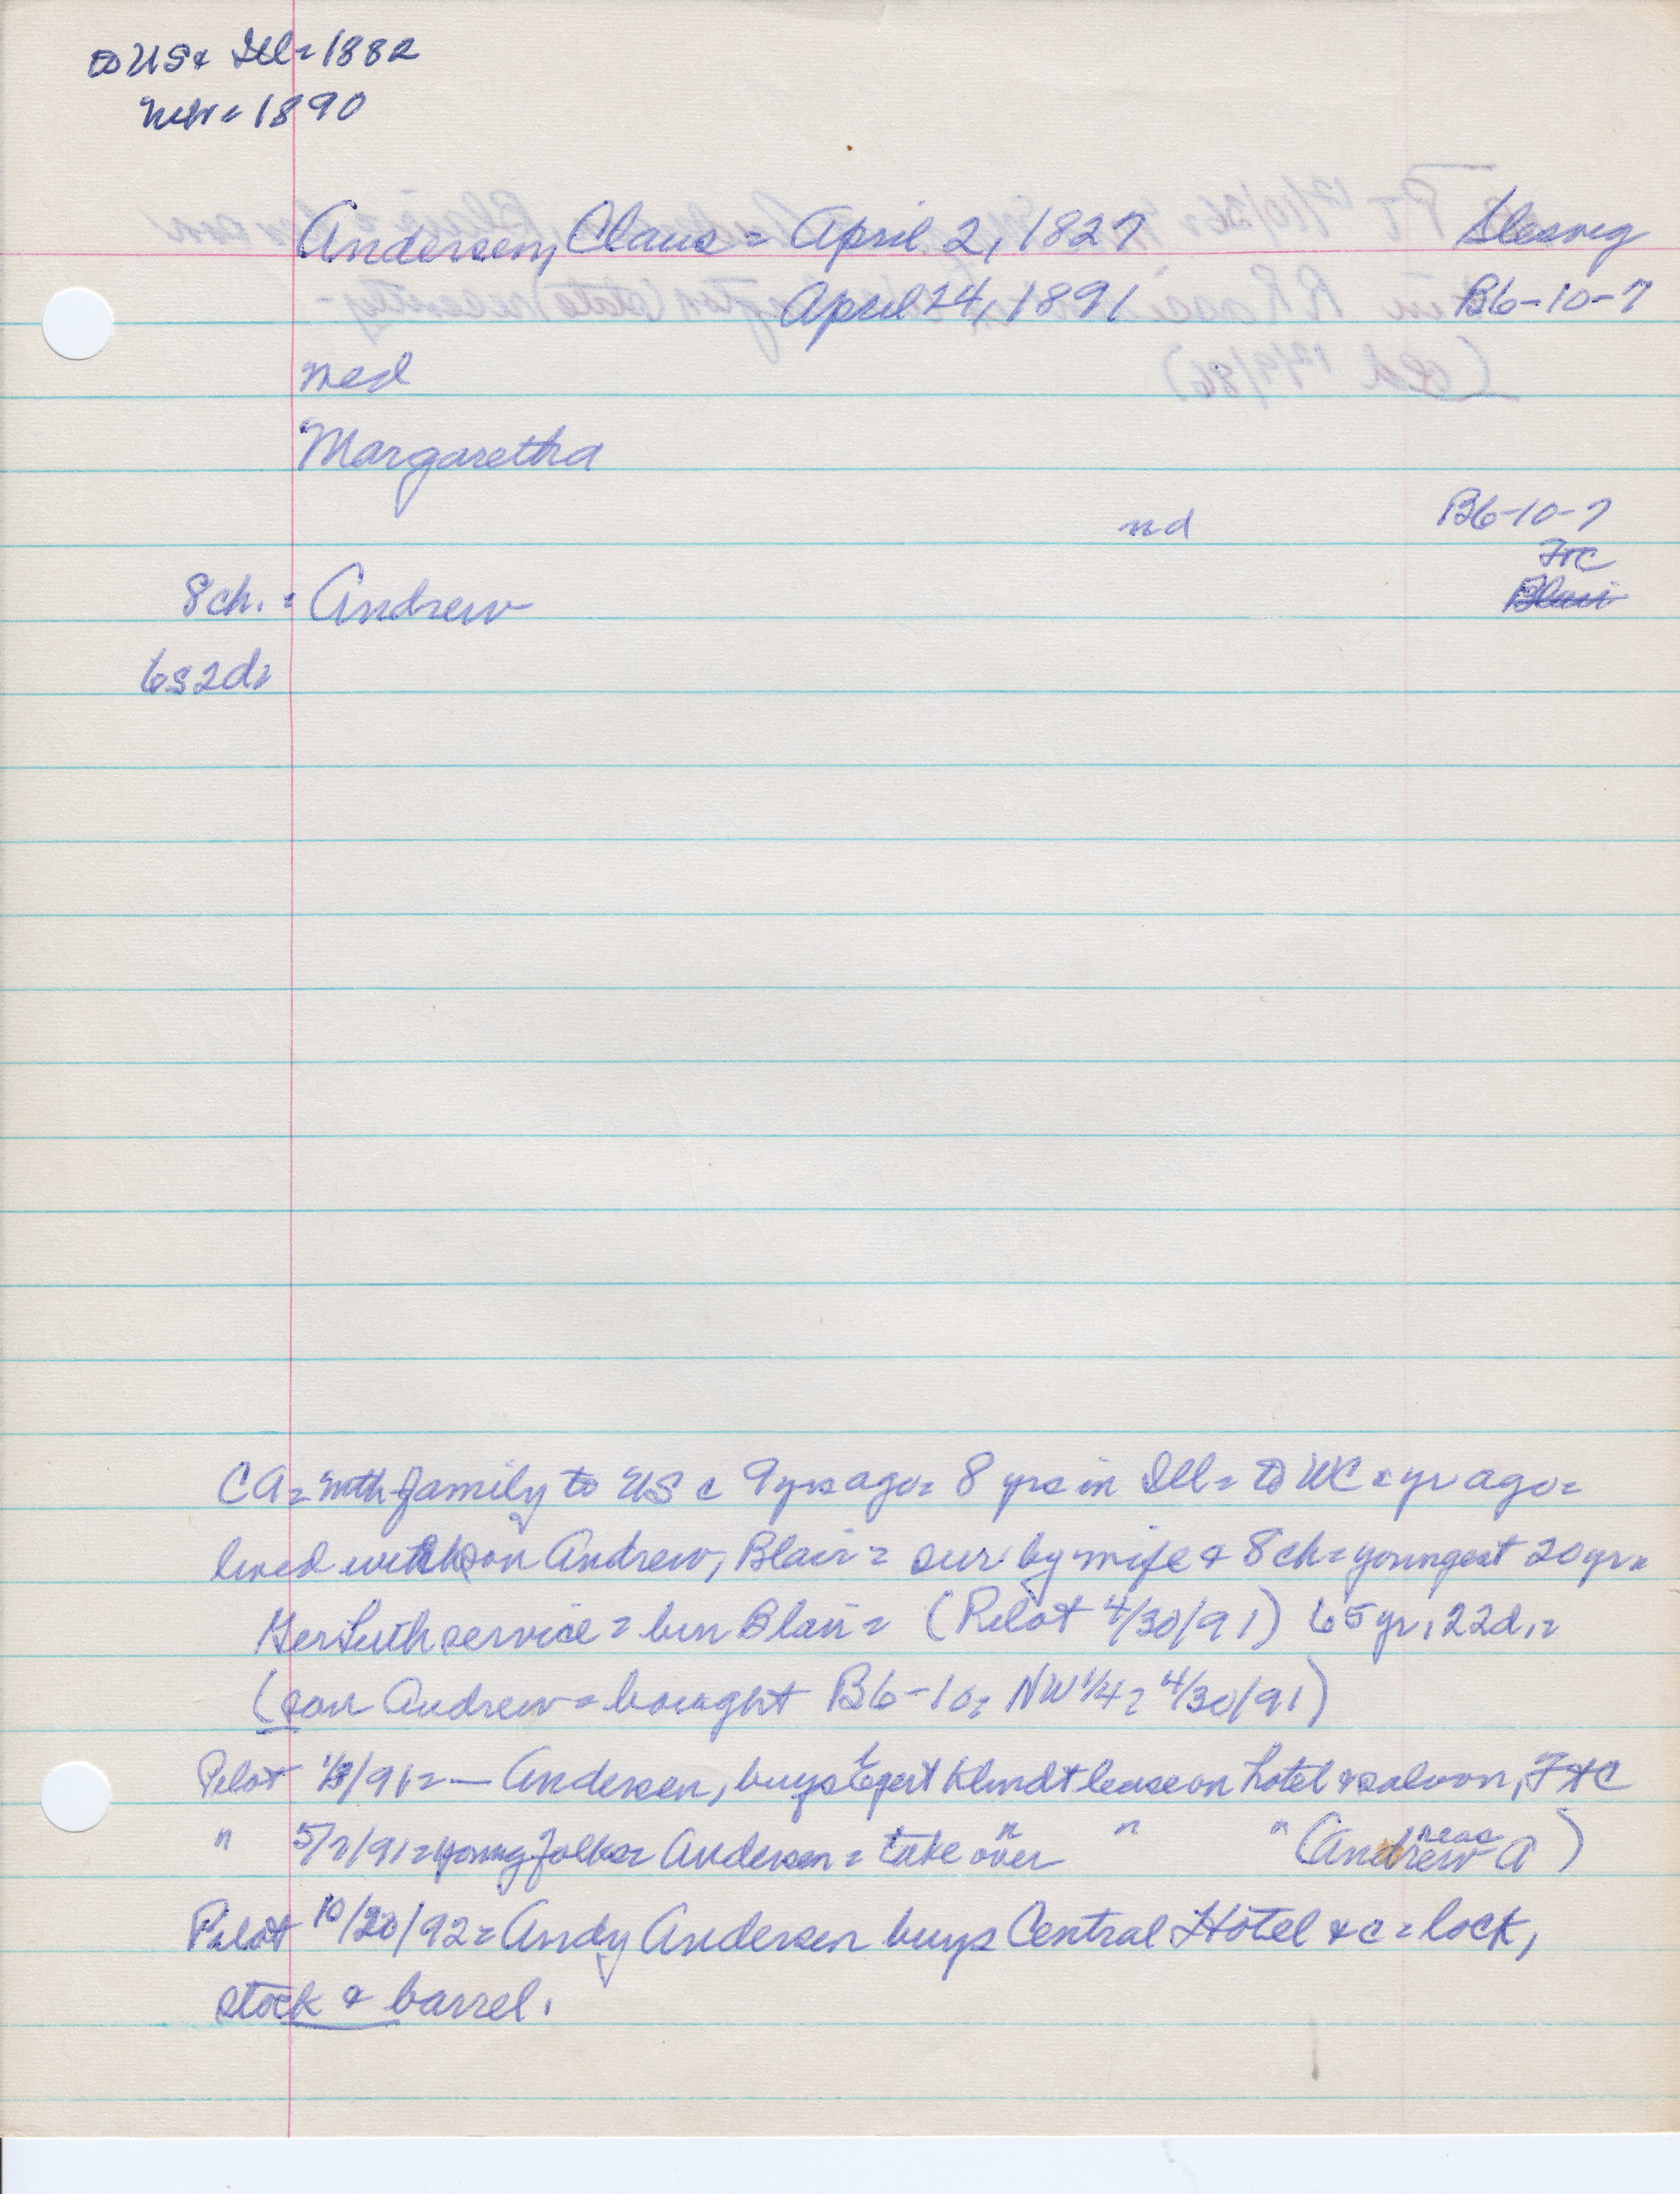 to US & Ill = 1882
Neb = 1890
Andersen, Claus = April 2, 1827 Slesvig
April 24, 1891 B6-10-7
med
Margaretha
nd B6-10-7
FtC
Blair
8 ch. = Andrew
6s 2d =
CA = with family to US c 9 yrs ago = 8 yrs in Ill = to WC c yr ago =
lived with son Andrew, Blair = sur by wife & 8 ch = youngest 20 yrs =
Ger Luth service = bur Blair = (Pilot 4/30/91) 65 yr, 22d, =
(son Andrew = bought B6-10, NW 1/4 = 4/30/91)
Pilot 91 = — Andersen, buys Egert Klindt lease on hotel & saloon, FtC
" 5/7/91 = young folks = Andersen = take over " " " (Andrew A)
reas
Pilot 10/20/92 = Andy Andersen buys Central Hotel &c = lock,
stock & barrel.